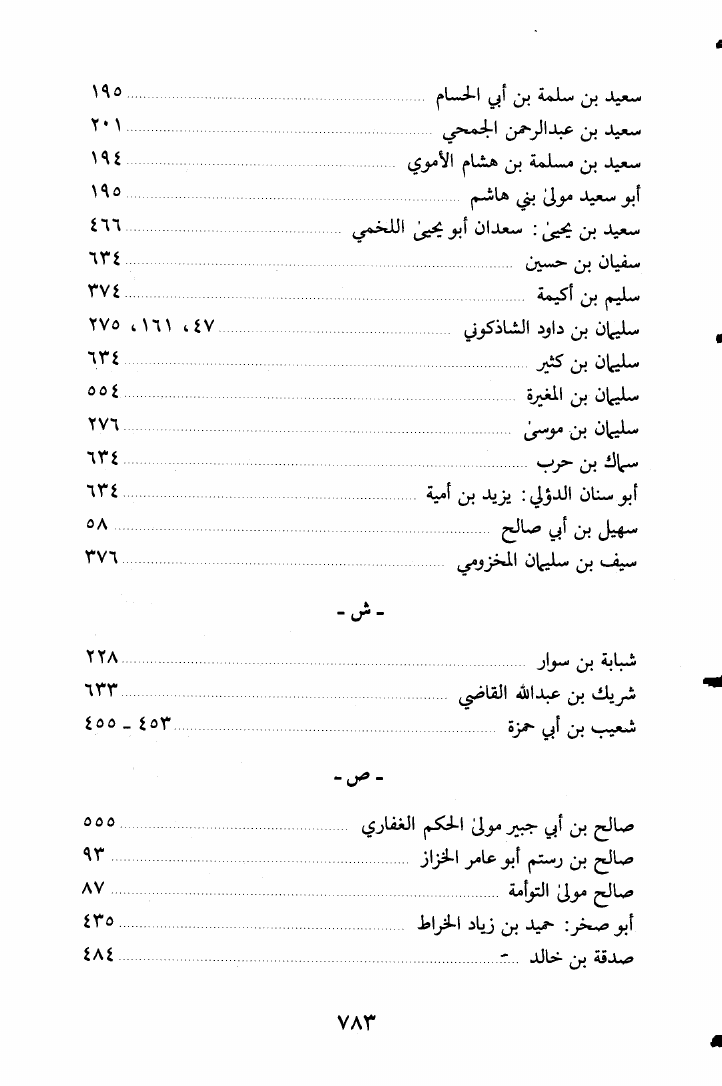 سعيد بن سلمة بن أبي الحسام ........ ١٩٥
سعيد بن عبدالرحمن الجمحي ........ ٢٠١
سعيد بن مسلمة بن هشام الأموي ........ ١٩٤
أبو سعيد مولىٰ بني هاشم ........ ١٩٥
سعيد بن يحيىٰ: سعدان أبو يحيىٰ اللخمي ........ ٤٦٦
سفيان بن حسين ........ ٦٣٤
سليم بن أكيمة ........ ٣٧٤
سليمان بن داود الشاذكوني ........ ٤٧، ١٦١، ٢٧٥
سليمان بن كثير ........ ٦٣٤
سليمان بن المغيرة ........ ٥٥٤
سليمان بن موسىٰ ........ ٢٧٦
سماك بن حرب ........ ٦٣٤
أبو سنان الدؤلي: يزيد بن أمية ........ ٦٣٤
سهيل بن أبي صالح ........ ٥٨
سيف بن سليمان المخزومي ........ ٣٧٦
- ش -
شبابة بن سوار ........ ٢٢٨
شريك بن عبدالله القاضي ........ ٦٣٣
شعيب بن أبي حمزة ........ ٤٥٣ - ٤٥٥
- ص -
صالح بن أبي جبير مولىٰ الحكم الغفاري ........ ٥٥٥
صالح بن رستم أبو عامر الخزاز ........ ٩٣
صالح مولىٰ التوأمة ........ ٨٧
أبو صخر: حميد بن زياد الخراط ........ ٤٣٥
صدقة بن خالد ........ ٤٨٤
٧٨٣